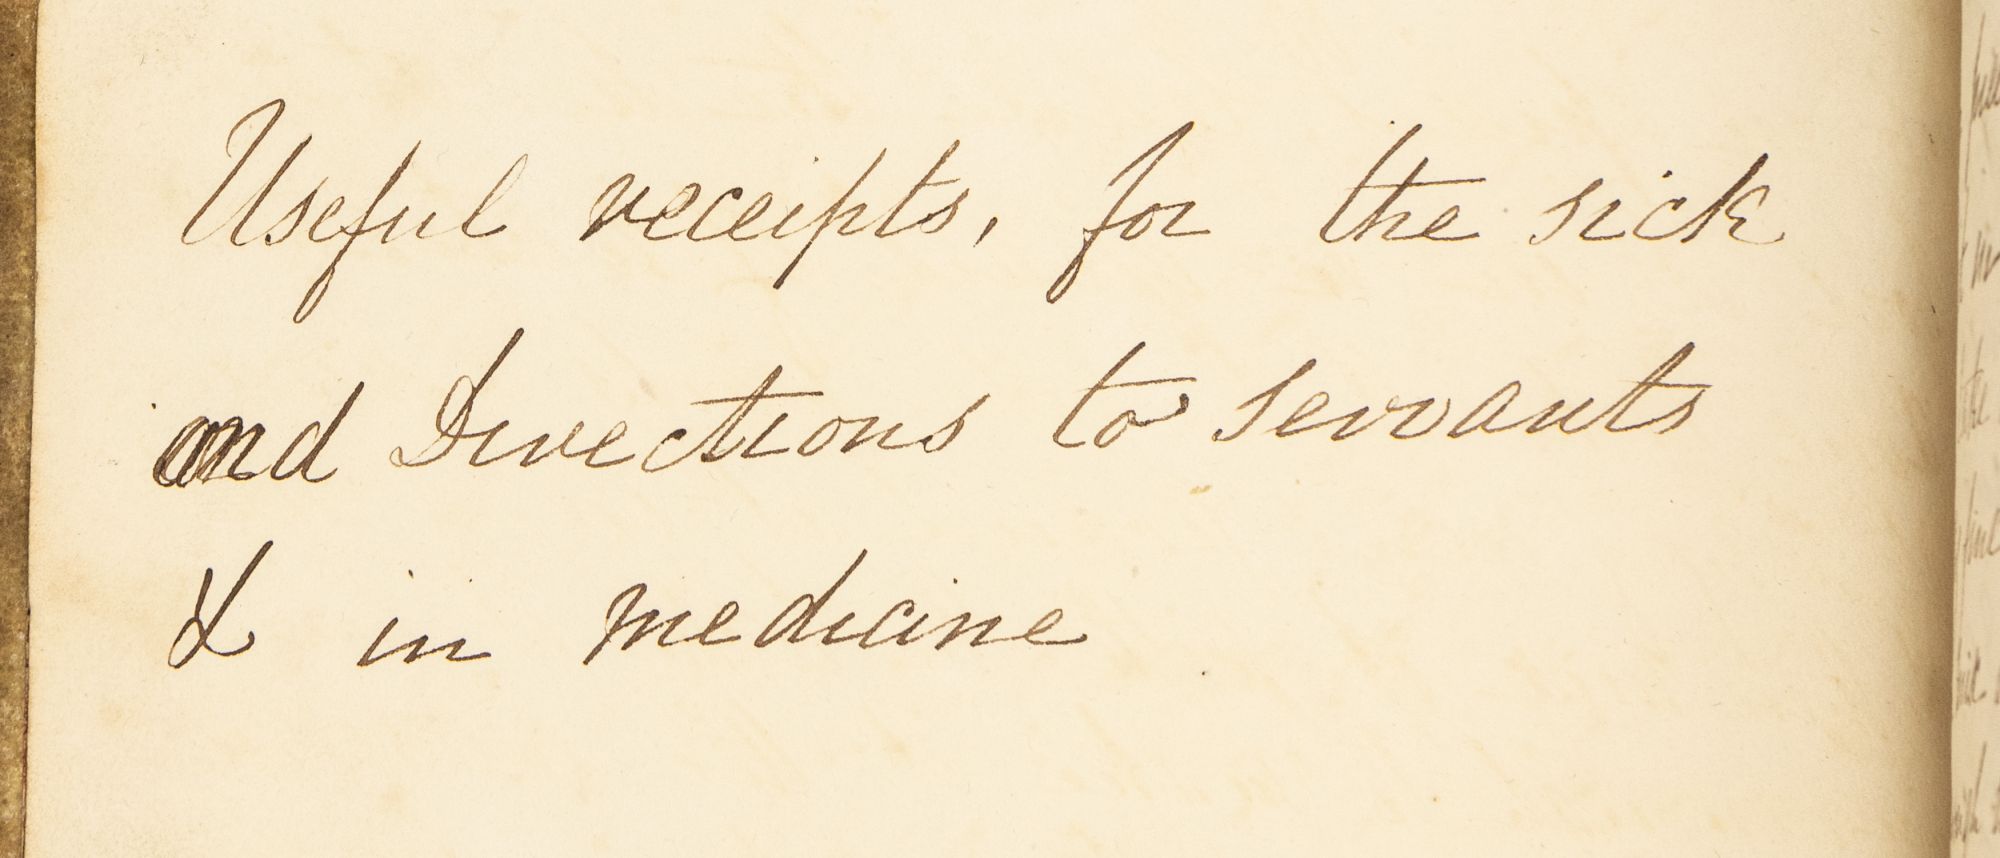 Useful receipts, for the sick
and Directions to servants
& in medicine